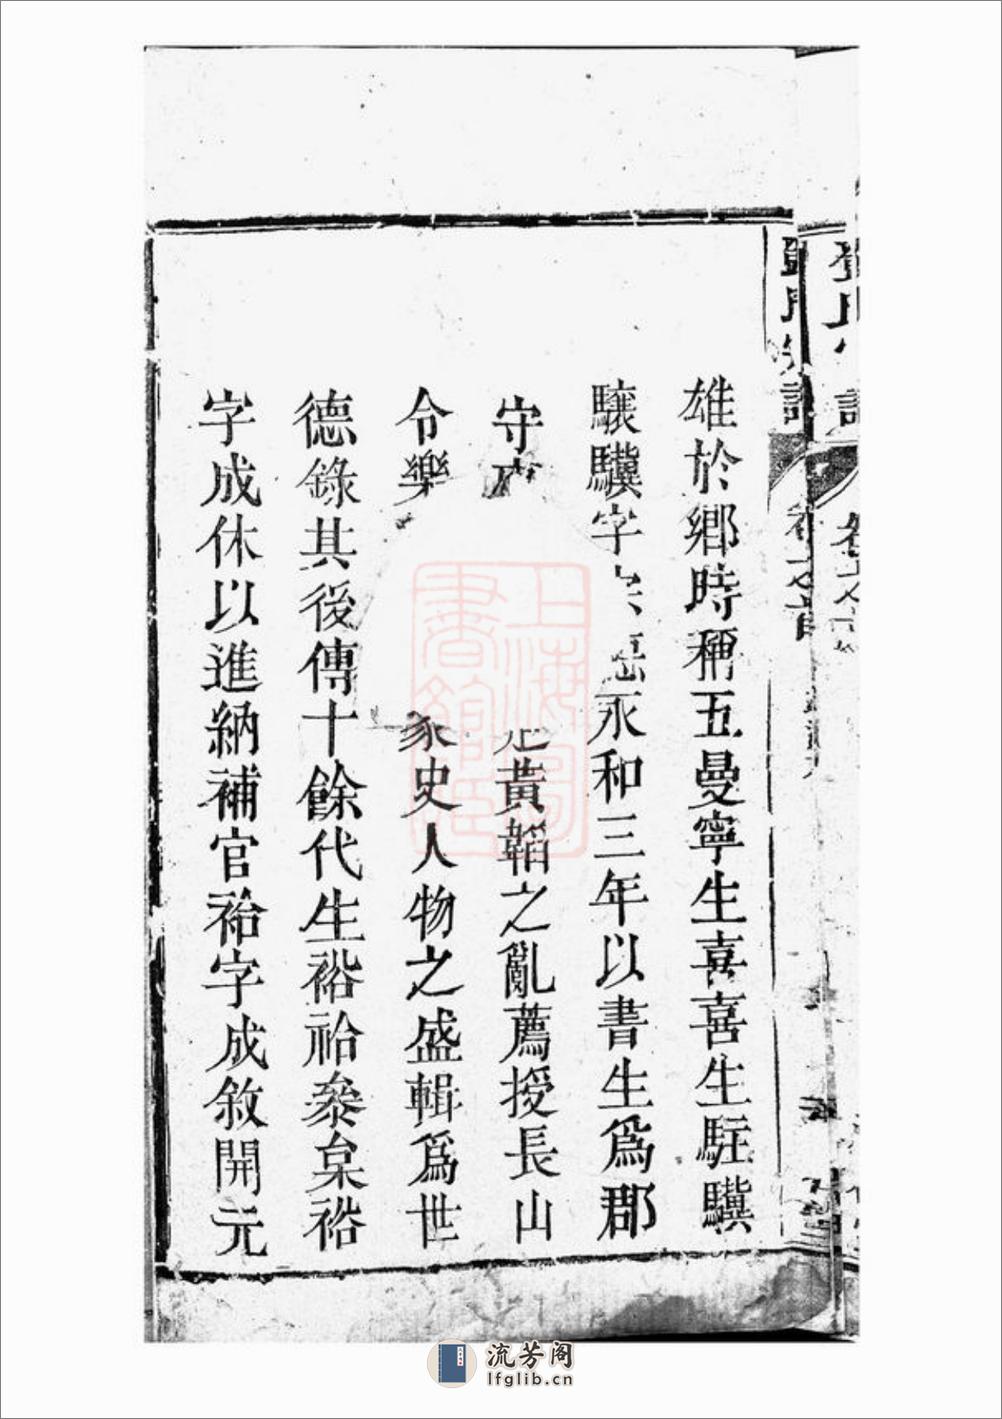 雄於鄉時稱五曼寧生喜喜生駐驥
驤驥字永和三年以書生爲郡
守黃韜之亂薦授長山
令樂史人物之盛輯爲世
德錄其後傳十餘代生裕祫叅枲裕
字成休以進納補官祫字成敘開元
上海圖書館藏
流芳阁
lfglib.cn